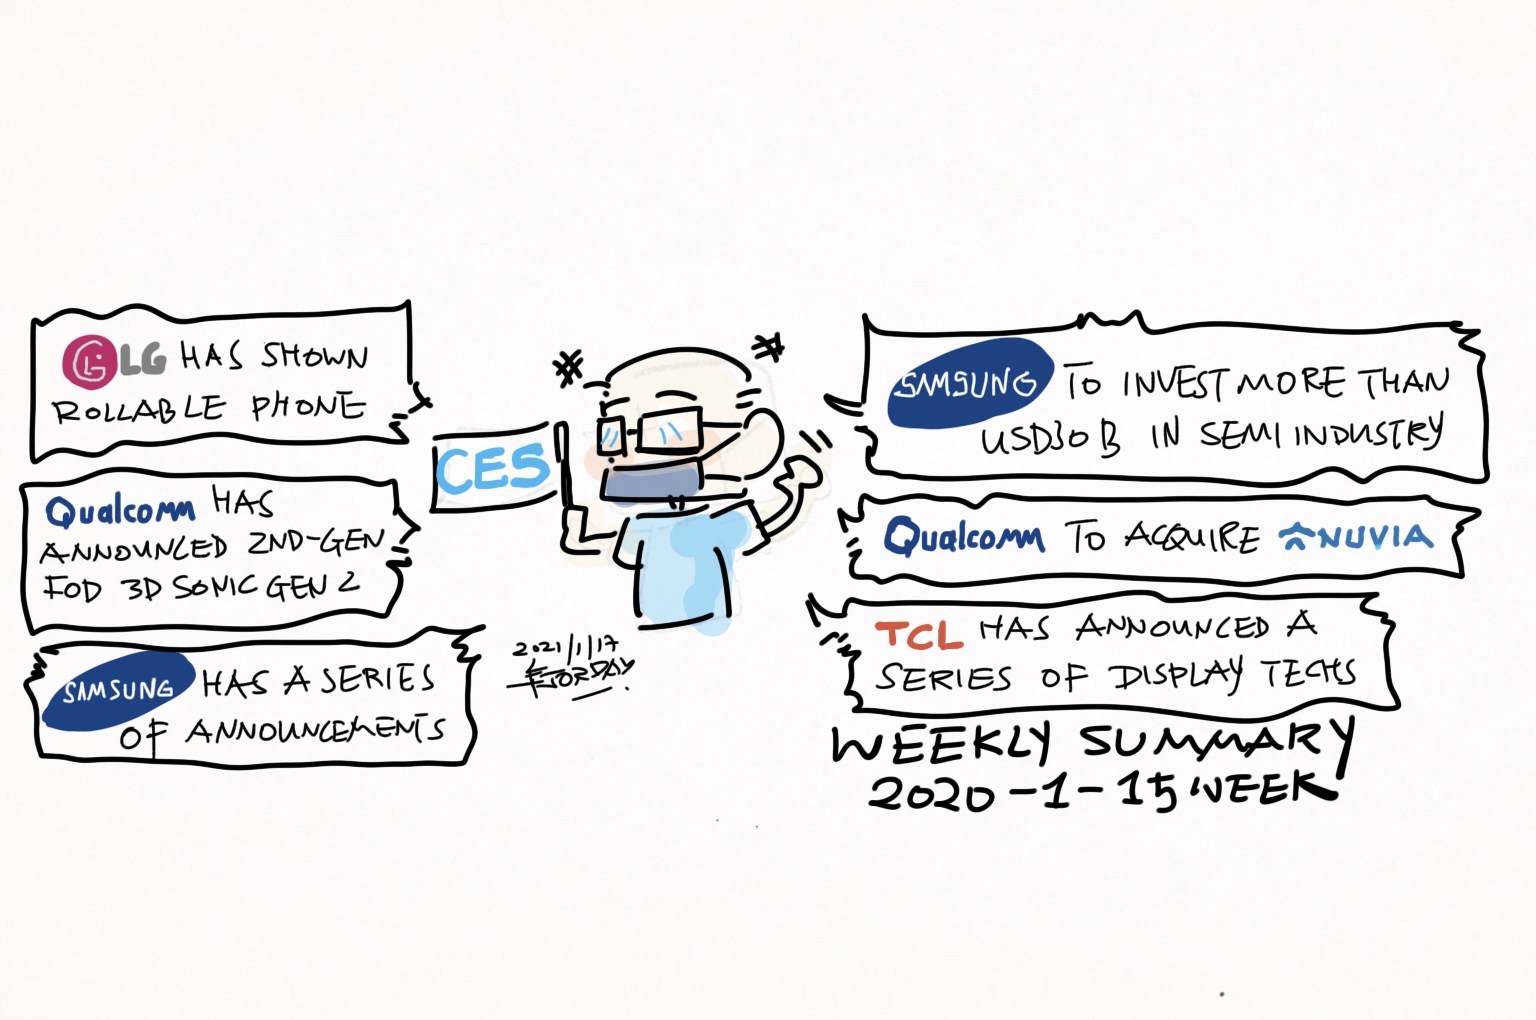 LG HAS SHOWN
ROLLABLE PHONE
Qualcomm HAS
ANNOUNCED 2ND-GEN
FOD 3D SONIC GEN 2
SAMSUNG HAS A SERIES
OF ANNOUNCEMENTS
CES
2021/1/17
FORDAY
SAMSUNG TO INVEST MORE THAN
USD30B IN SEMI INDUSTRY
Qualcomm TO ACQUIRE NUVIA
TCL HAS ANNOUNCED A
SERIES OF DISPLAY TECHS
WEEKLY SUMMARY
2020-1-15 WEEK